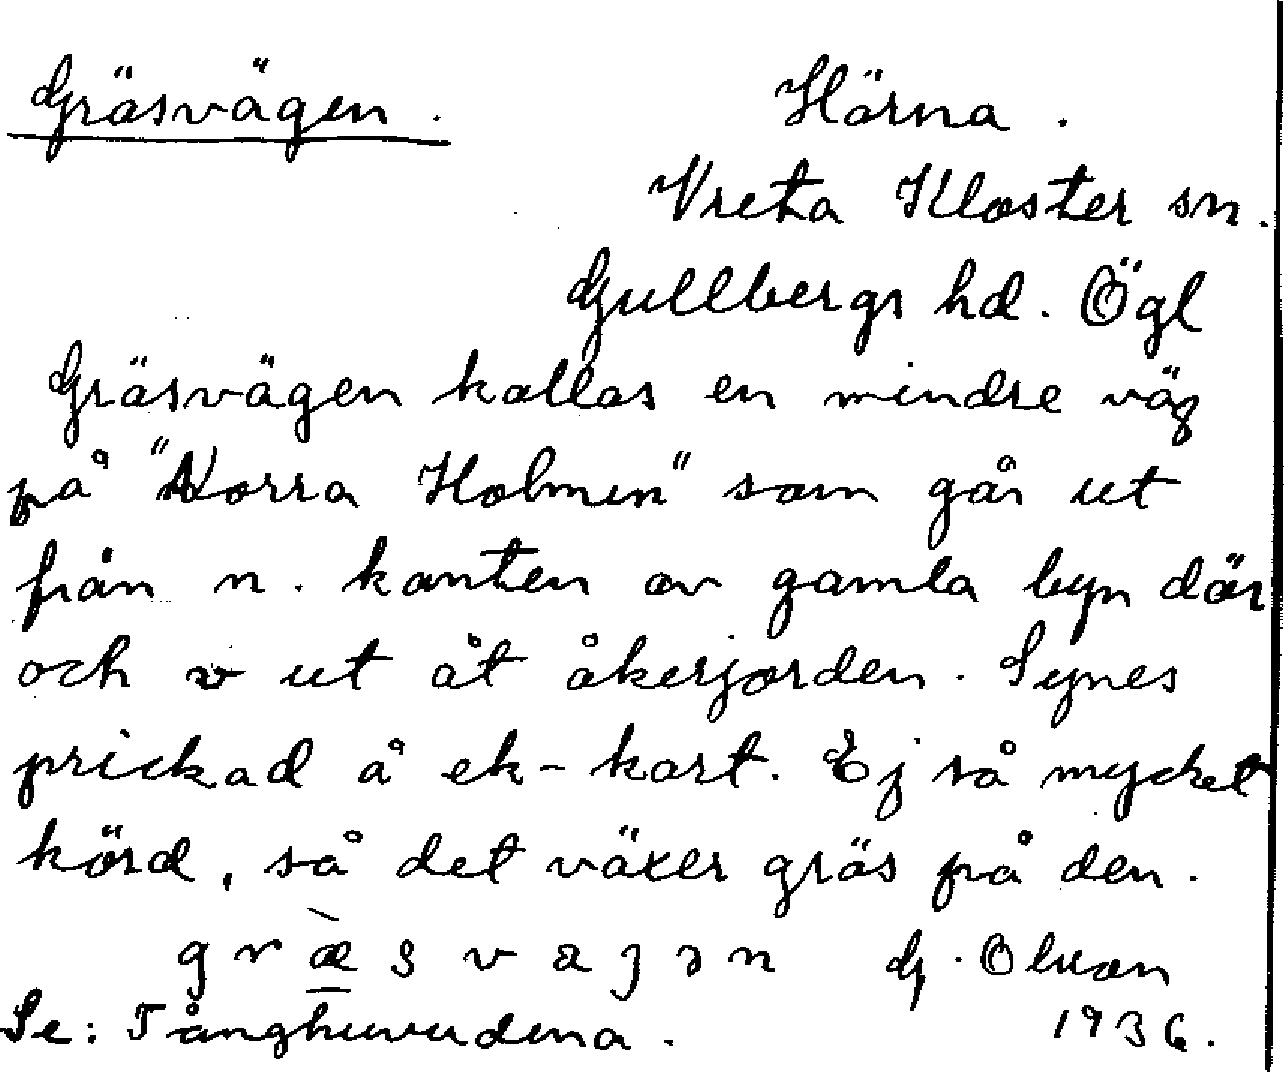 Gräsvägen. Härna.
Vreta Kloster sn.
Gullbergs hd. Ögl
Gräsvägen kallas en mindre väg
på "Norra Holmen" som går ut
från n. kanten av gamla byn där
och v ut åt åkerjorden. Synes
prickad å ek-kart. Ej så mycket
körd, så det växer gräs på den.
G. Olson
Se: Tånghuvudena. 1936.